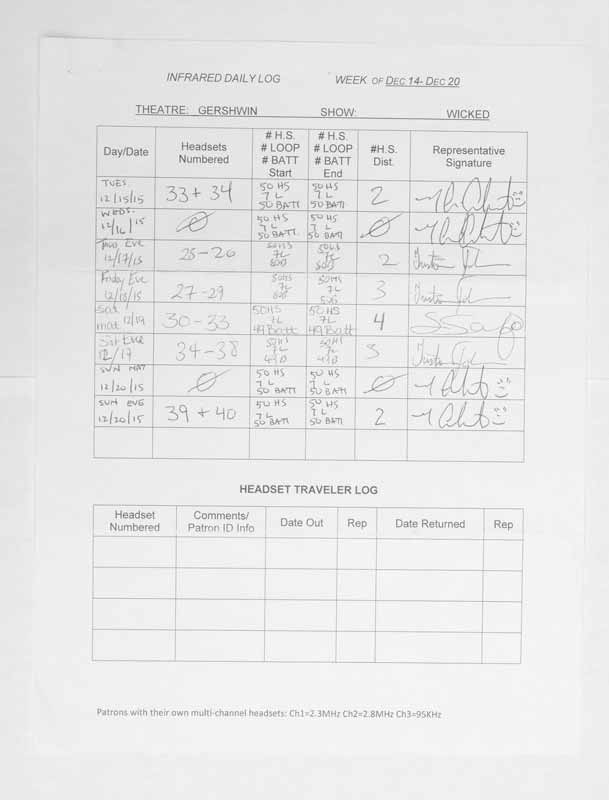 INFRARED DAILY LOG WEEK OF DEC 14- DEC 20
THEATRE: GERSHWIN SHOW: WICKED
Day/Date
Headsets
Numbered
# H.S.
# LOOP
# BATT
Start
# H.S.
# LOOP
# BATT
End
#H.S.
Dist.
Representative
Signature
TUES.
12/15/15
33 + 34
50 HS
7 L
50 BATT
50 HS
7 L
50 BATT
2
WEDS.
12/16/15
Ø
50 HS
7 L
50 BATT.
50 HS
7 L
50 BATT
Ø
Thus Eve
12/17/15
25-26
50HS
7L
50HS
7L
2
Friday Eve
12/18/15
27-29
50HS
7L
50HS
7L
3
Sat
mat 12/19
30-33
50HS
7L
49 Batt
50HS
7L
49 Batt
4
Sat Eve
34-38
50HS
7L
49B
50HS
7L
49B
3
SUN MAT
12/20/15
Ø
50 HS
7 L
50 BATT
50 HS
7 L
50 BATT
Ø
SUN EVE
12/20/15
39 + 40
50 HS
7 L
50 BATT
50 HS
7 L
50 BATT
2
HEADSET TRAVELER LOG
Headset
Numbered
Comments/
Patron ID Info
Date Out
Rep
Date Returned
Rep
Patrons with their own multi-channel headsets: Ch1=2.3MHz Ch2=2.8MHz Ch3=95KHz